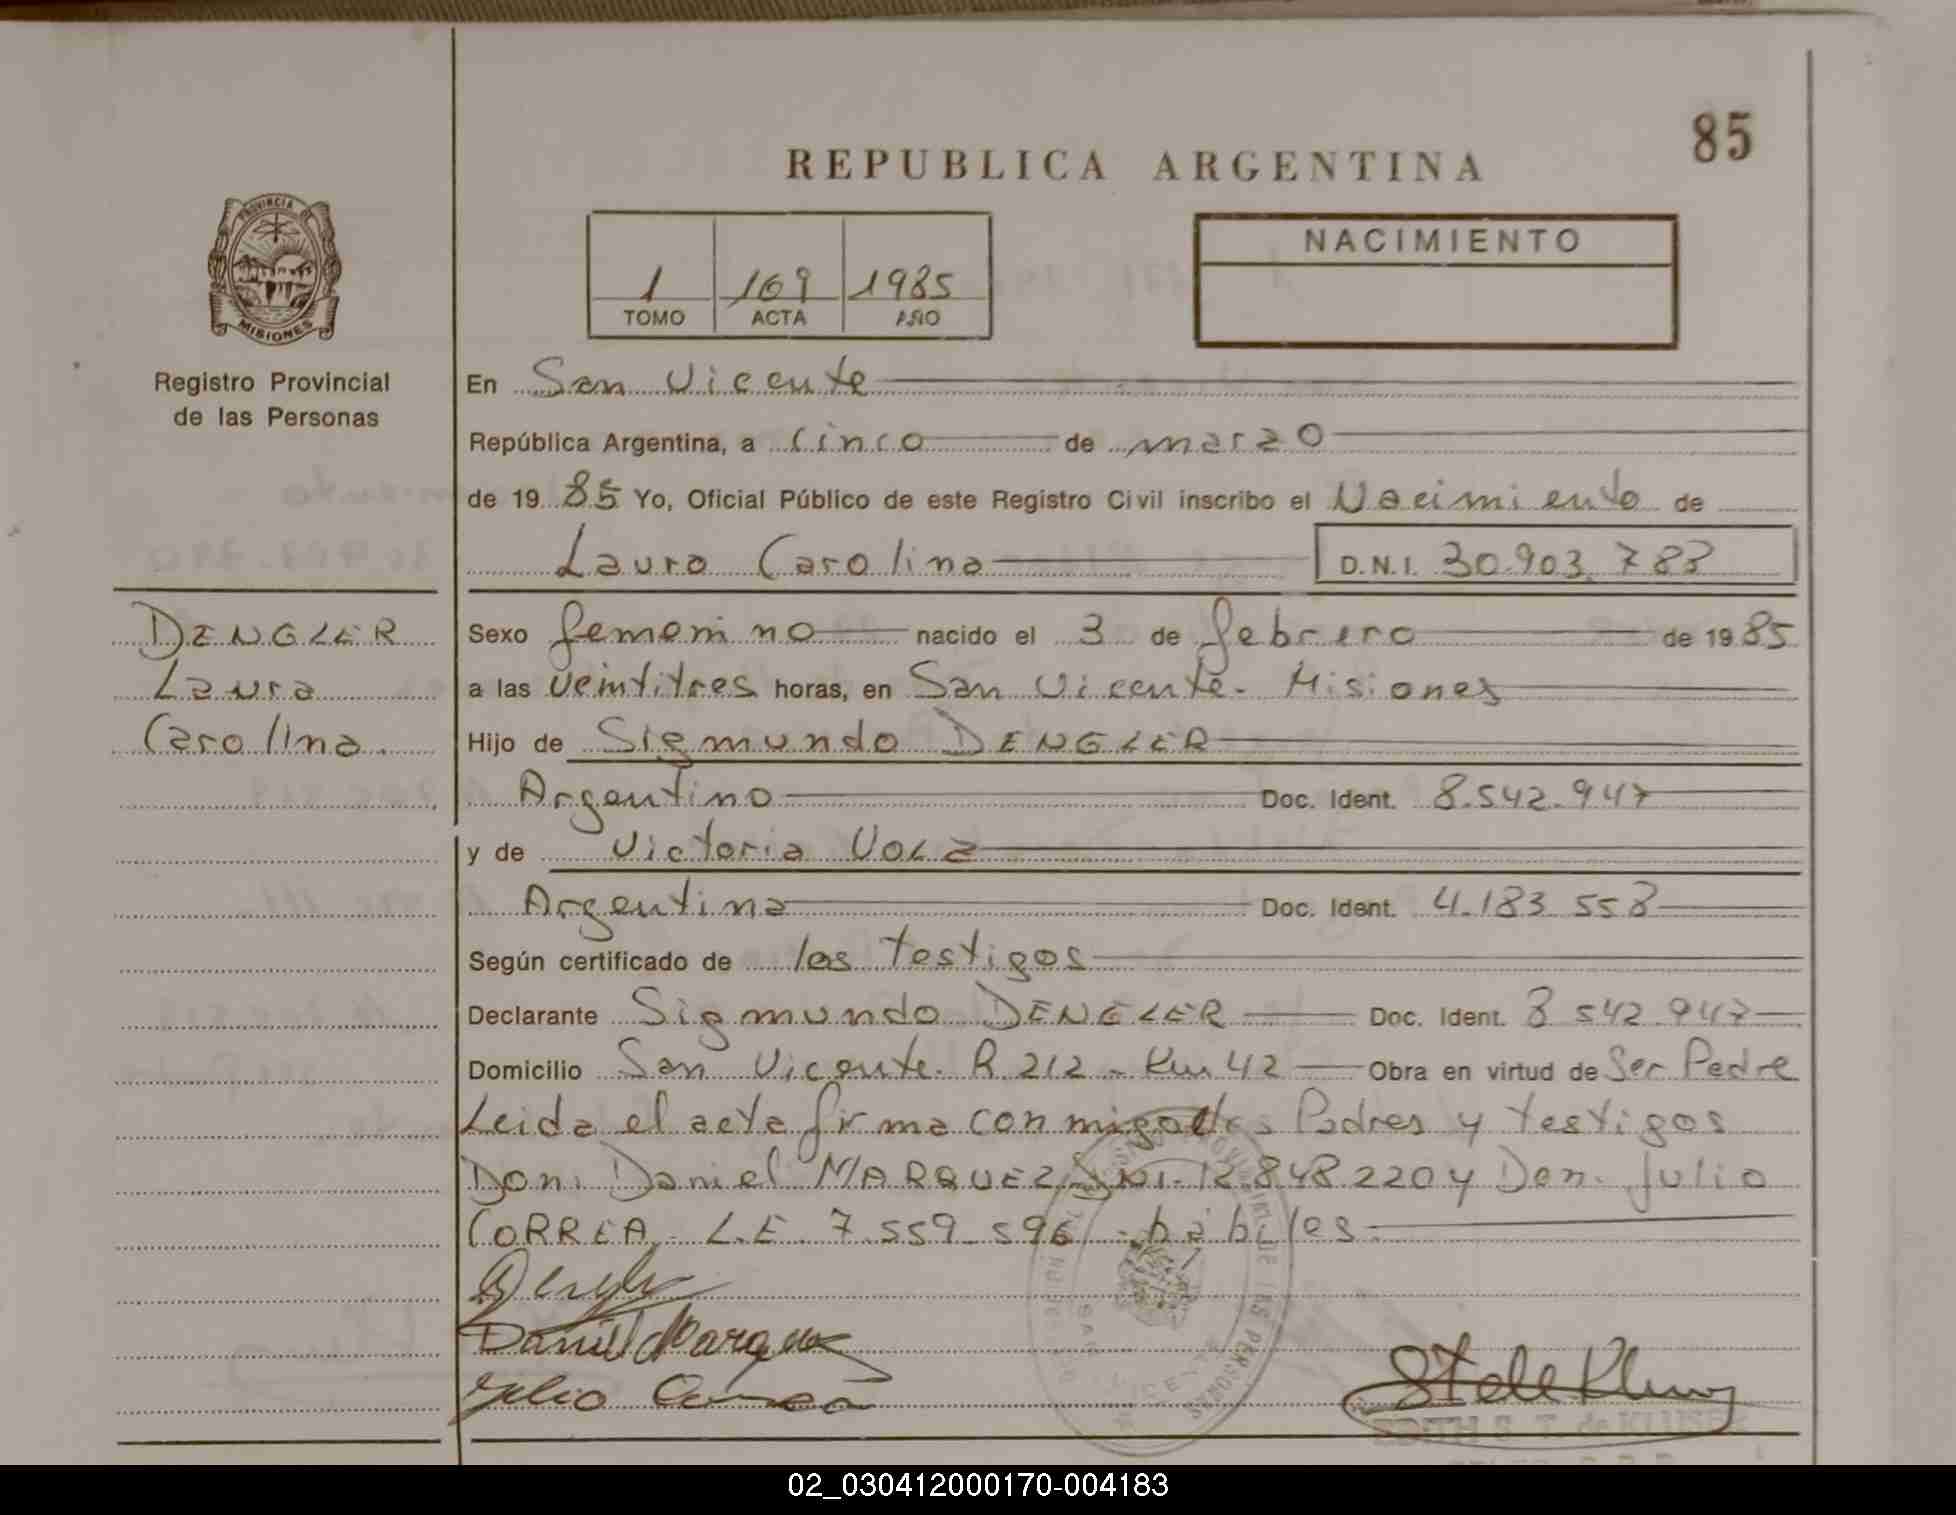 85
REPUBLICA ARGENTINA
PROVINCIA DE
MISIONES
Registro Provincial
de las Personas
1 169 1985
TOMO ACTA AÑO
NACIMIENTO
En San Vicente
República Argentina, a cinco de marzo
de 19 85 Yo, Oficial Público de este Registro Civil inscribo el Nacimiento de
Laura Carolina D.N.I. 30.903.783
DENGLER
Laura
Carolina.
Sexo femenino nacido el 3 de febrero de 19 85
a las veintitres horas, en San Vicente - Misiones
Hijo de Sigmundo DENGLER
Argentino Doc. Ident. 8.542.947
y de Victoria VOLZ
Argentina Doc. Ident. 4.183.558
Según certificado de los testigos
Declarante Sigmundo DENGLER Doc. Ident. 8.542.947
Domicilio San Vicente. R. 212 - Km 42 Obra en virtud de Ser Padre
Leida el acta firma conmigo los Padres y testigos
Don. Daniel MARQUEZ DNI. 12.848.220 y Don. Julio
CORREA - L.E. 7.559.596 - hábiles.
Daniel Marquez
Julio Correa
EDITH S. T. de KLUSE
02_030412000170-004183